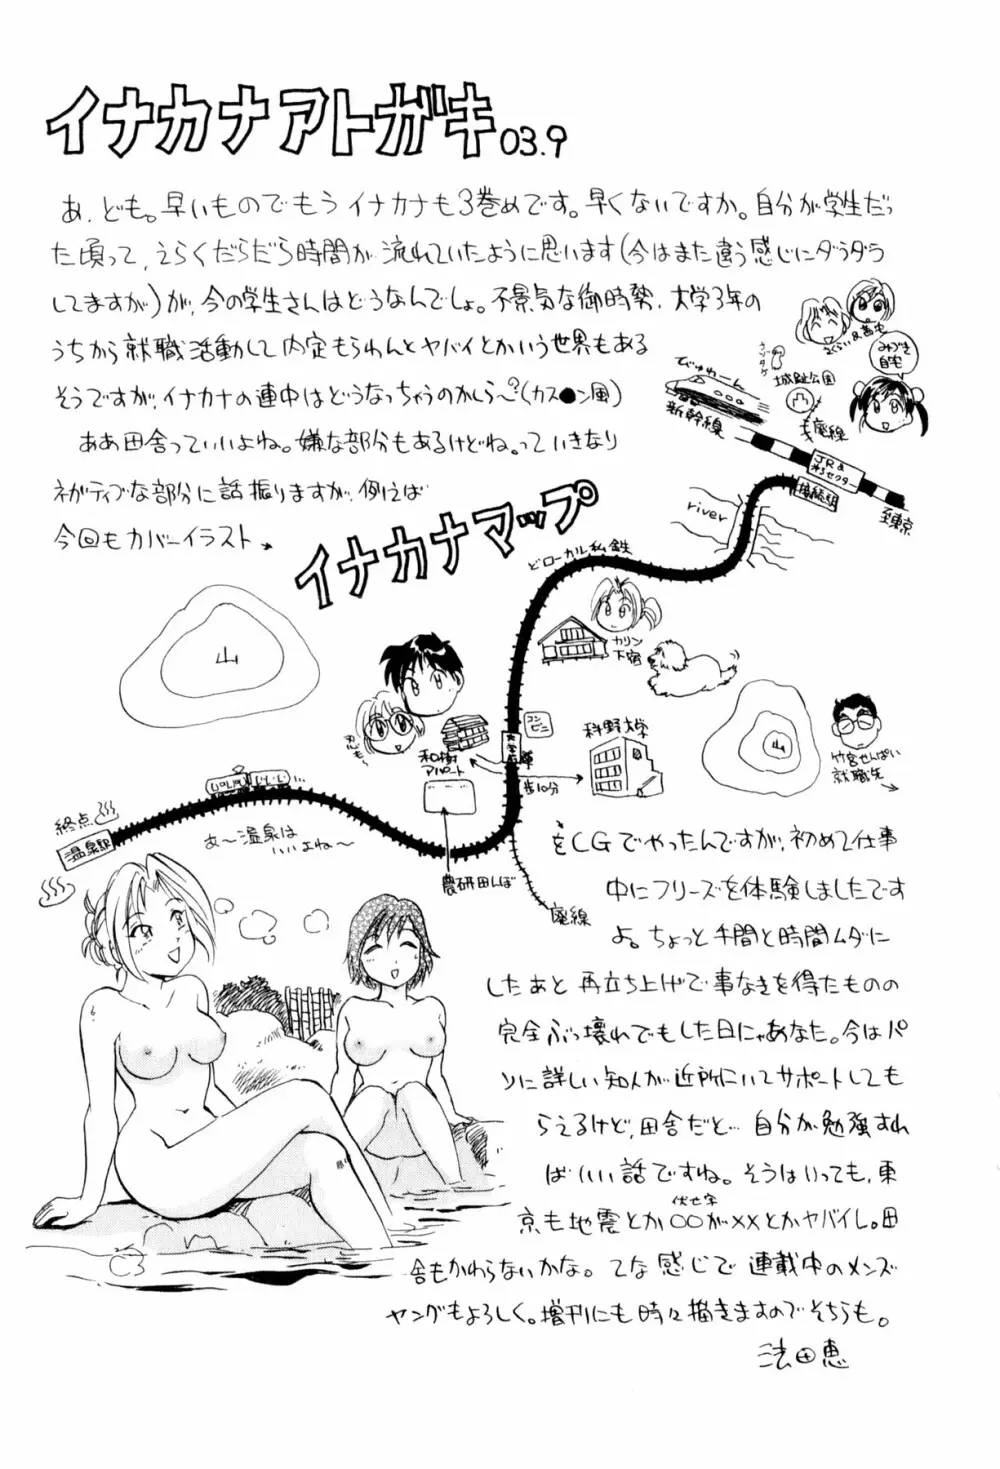 イナカナアトガキ03.9
あ、ども。早いものでもうイナカナも3巻めです。早くないですか。自分が学生だっ
た頃って、えらくだらだら時間が流れていたように思います(今はまた違う感じにダラダラ
してますが)が、今の学生さんはどうなんでしょ。不景気な御時勢、大学3年の
うちから就職活動して内定もらわんとヤバイとかいう世界もある
そうですが、イナカナの連中はどうなっちゃうのかしら〜?(カス●ン風)
ああ田舎っていいよね。嫌な部分もあるけどね。っていきなり
ネガティブな部分に話振りますが、例えば
今回もカバーイラスト
イナカナマップ
びゅわーん
新幹線
城趾公園
みずき
自宅
廃線
JR&
第3セクター
接続駅
至東京
river
どローカル私鉄
カリン
下宿
山
コンビニ
科野大学
和樹
アパート
歩10分
山
竹宮せんぱい
就職先
終点
温泉駅
あ〜温泉は
いいよね〜
農研田んぼ
廃線
をCGでやったんですが、初めて仕事
中にフリーズを体験しましたです
よ。ちょっと手間と時間ムダに
したあと再立ち上げで事なきを得たものの
完全ぶっ壊れでもした日にゃあなた。今はパ
ソに詳しい知人が近所にいてサポートしても
らえるけど、田舎だと…自分が勉強すれ
ばいい話ですね。そうはいっても、東
伏せ字
京も地震とか○○が××とかヤバイし。田
舎もかわらないかな。てな感じで連載中のメンズ
ヤングもよろしく。増刊にも時々描きますのでそちらも。
法田恵